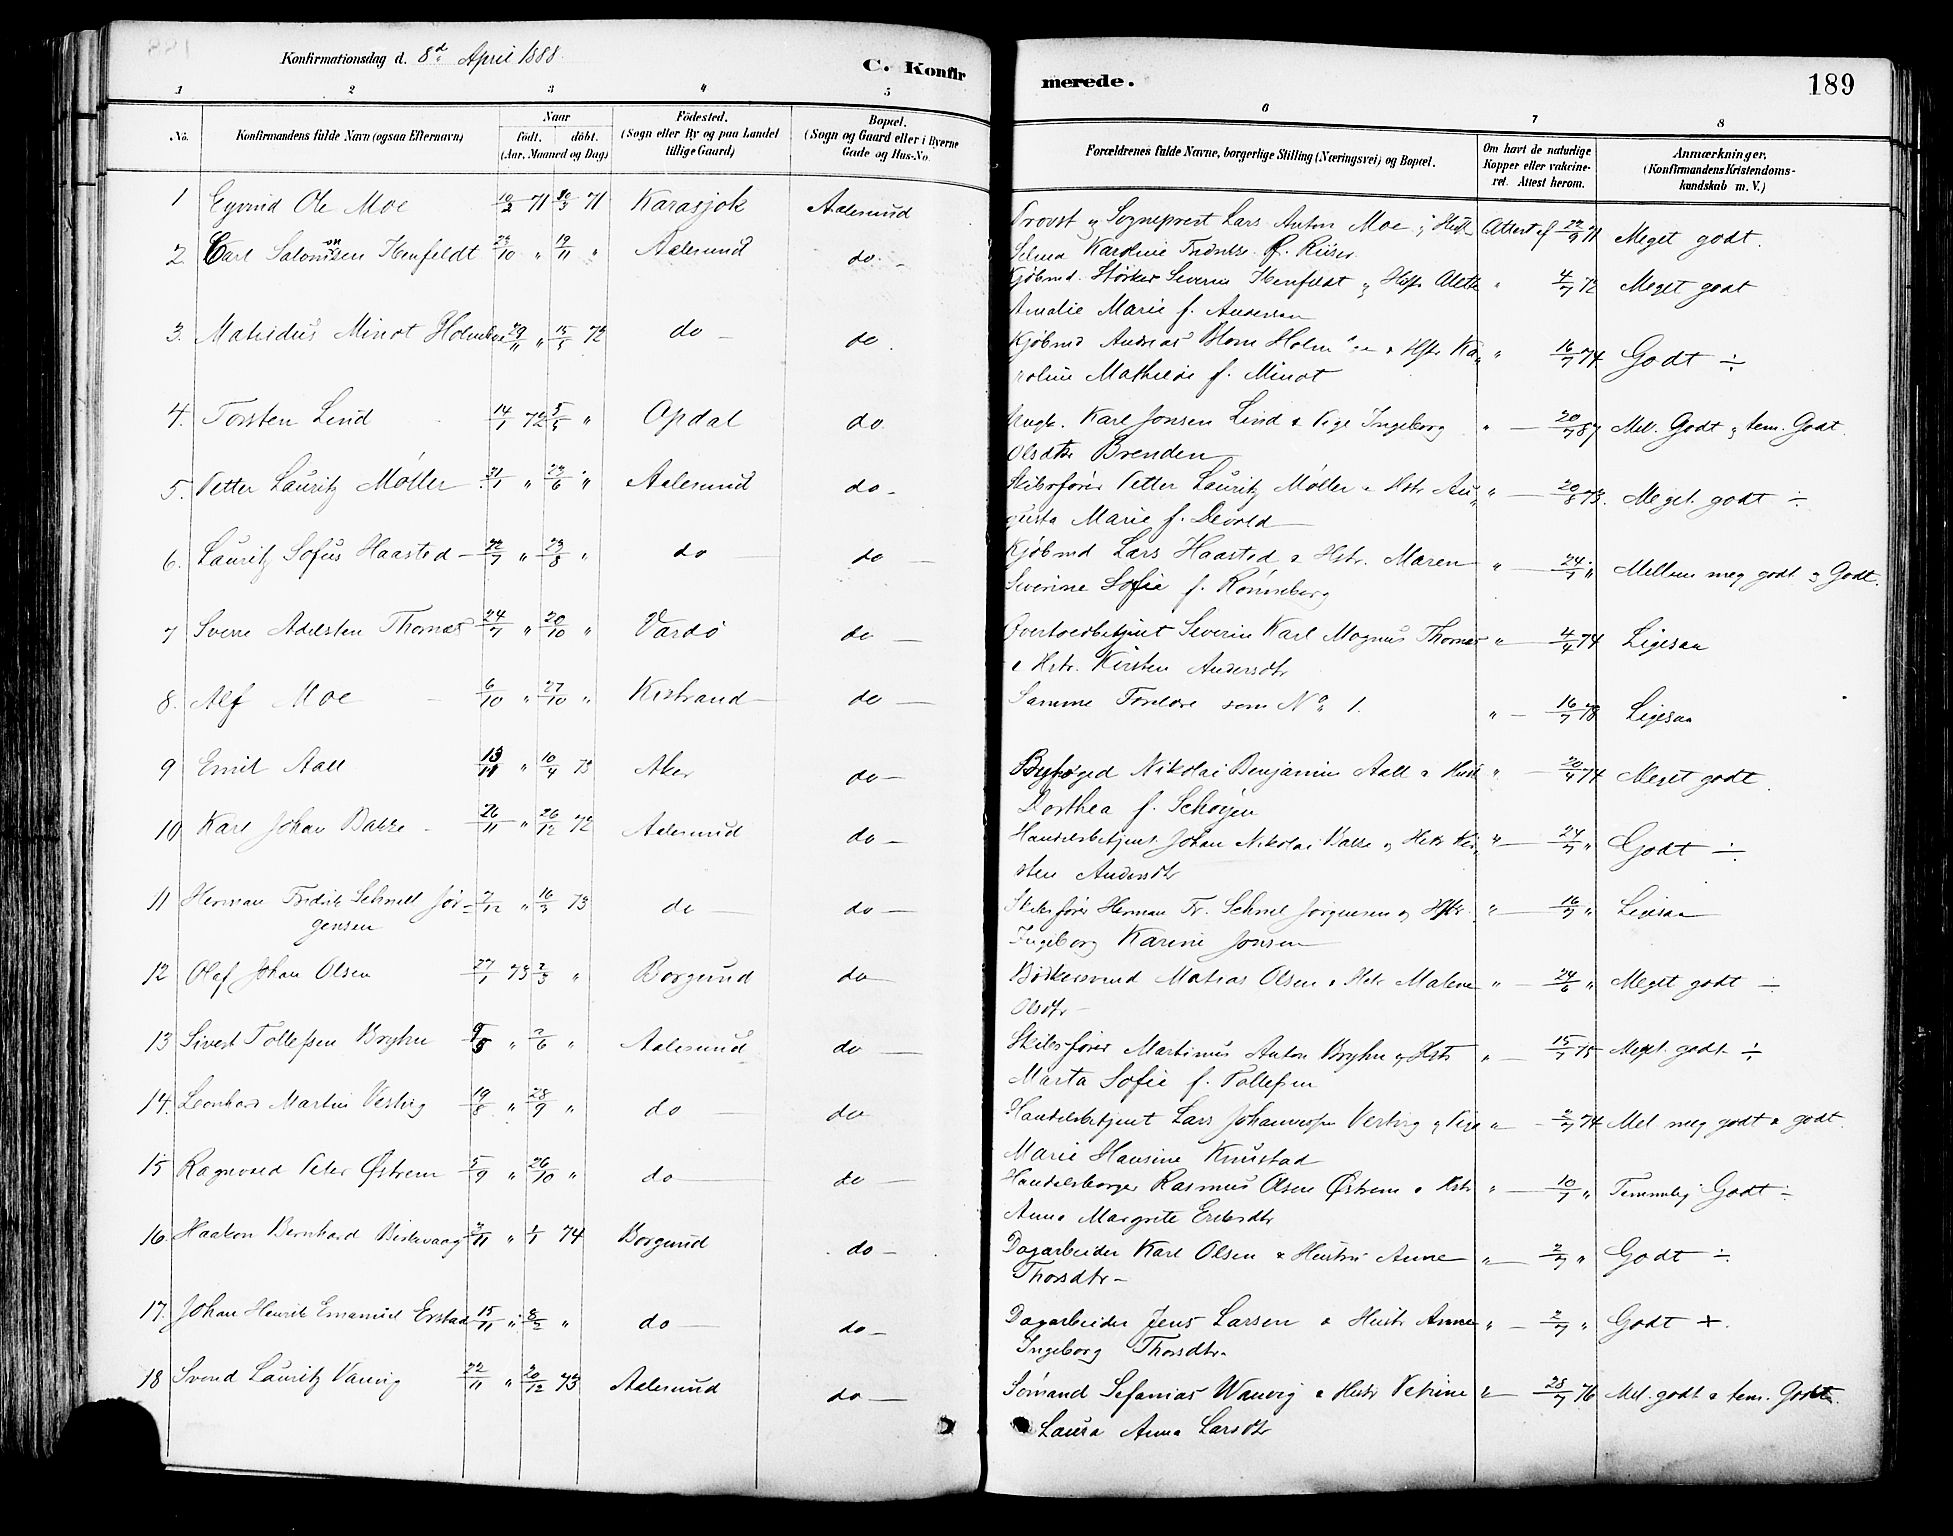 Konfirmationsdag d. 8d April 1888.
C. Konfirmerede.
189
1 2 3 4 5 6 7 8
No.
Konfirmandens fulde Navn (ogsaa Efternavn)
Naar
født. døbt.
(Aar, Maaned og Dag)
Fødested.
(Sogn eller By og paa Landet
tillige Gaard)
Bopæl.
(Sogn og Gaard eller i Byerne
Gade og Hus-No.
Forældrenes fulde Navne, borgerlige Stilling (Næringsvei) og Bopæl.
Om havt de naturlige
Kopper eller vakcine-
ret. Attest herom.
Anmærkninger.
(Konfirmandens Kristendoms-
kundskab m. V.)
1 Eyvind Ole Moe 10/2 71 71 Karasjok Aalesund Provst og Sogneprest Lars Anton Moe og Hustr Attest af 22/9 71 Meget godt.
Selma Karoline f. Riiser
2 Carl Salomonsen Henfeldt 23/10 " 19/11 " Aalesund do - Kjøbmd. Størker Severin Henfeldt og Hstr Alette " 4/7 72 Meget godt
Amalie Marie f. Andersen
3. Mathidus Minot Holmboe 29/11 " 15/5 72 do - do. Kjøbmd Andreas Blom Holmboe & Hstr Ka- " 16/7 74 Godt ÷
roline Mathilde f. Minot
4. Torsten Lind 14/1 72 5/5 " Opdal do Ungk. Karl Jonsen Lind & Pige Ingeborg " - 20/7 87 Mel. Godt og tem. Godt
Olsdtr Brenden
5. Petter Lauritz Møller 31/1 " 23/6 " Aalesund do - Skibsfører Petter Lauritz Møller & Hstr Au- " - 20/8 73. Meget godt ÷
gusta Marie f. Devold
6. Lauritz Sofus Haasted - 22/7 " 23/8 " do do - Kjøbmd Lars Haasted & Hstr. Maren " - 24/7 " Mellem meg godt og Godt.
Severine Sofie f. Rønneberg
7 Sverre Adelsten Thomas 24/7 " 20/10 " Vardø do - Overtoldbetjent Severin Karl Magnus Thomas " - 4/4 74 Ligesaa
& Hstr. Kirsten Andersdtr
8. Alf Moe 6/10 " 27/10 " Kistrand - do - Samme Foreldre som No 1. " - 16/7 78 Ligesaa
9 Emil Aall 13/11 " 10/4 73 Aker do - Byfoged Nikolai Benjamin Aall & Hustr " - 20/4 74 Meget godt.
Dorthea f. Schøyen
10 Karl Johan Balze 26/11 " 26/12 72 Aalesund do - Handelsbetjent Johan Nikolai Balze og Hstr Kir- " - 24/7 " Godt ÷
sten Andersdtr
11 Herman Fredrik Schmell Jør- 2/12 " 16/3 73 do - do - Skibsfører Herman Fr. Schmel Jørgensen og Hstr. " - 16/7 " Ligesaa
gensen Ingeborg Karine Jonsen
12 Olaf Johan Olsen 27/1 73 2/3 " Borgund do - Bødkersvend Matias Olsen & Hstr Malene " - 24/6 " Meget godt ÷
Olsdtr -
13 Sivert Tollefsen Bryhn 9/5 " 2/6 " Aalesund do - Skibsfører Martinus Anton Bryhn og Hstr " - 15/7 75 Meget godt ÷
Marta Sofie f. Tollefsen
14. Leonhard Martin Vestvig 19/8 " 28/9 " do - do Handelsbetjent Lars Johannessen Vestvig og Pige " - 2/7 74 Mel meg godt & godt.
Marie Hansine Knustad
15 Ragnvald Peter Østrem 5/9 " 26/10 " do - do - Handelsborger Rasmus Olsen Østrem & Hstr " - 10/7 " Temmelig Godt ÷
Anna Margrete Eriksdtr
16. Haakon Bernhard Birkevaag 2/11 " 1/1 74 Borgund do - Dagarbeider Karl Olsen & Hustru Anne " - 2/7 " Godt ÷
Thorsdtr -
17. Johan Henrik Emanuel Erstad 15/11 " 8/2 " do - do - Dagarbeider Jens Larsen & Hustr Anne " - 2/7 " Godt +.
Ingeborg Thorsdtr.
18 Svend Lauritz Vanvig 22/11 " 20/12 73 Aalesund do - Sømand Sefanias Wanvig & Hustr Petrine " - 28/7 76 Mel. godt & tem. Godt.
Laura Anna Larsdtr